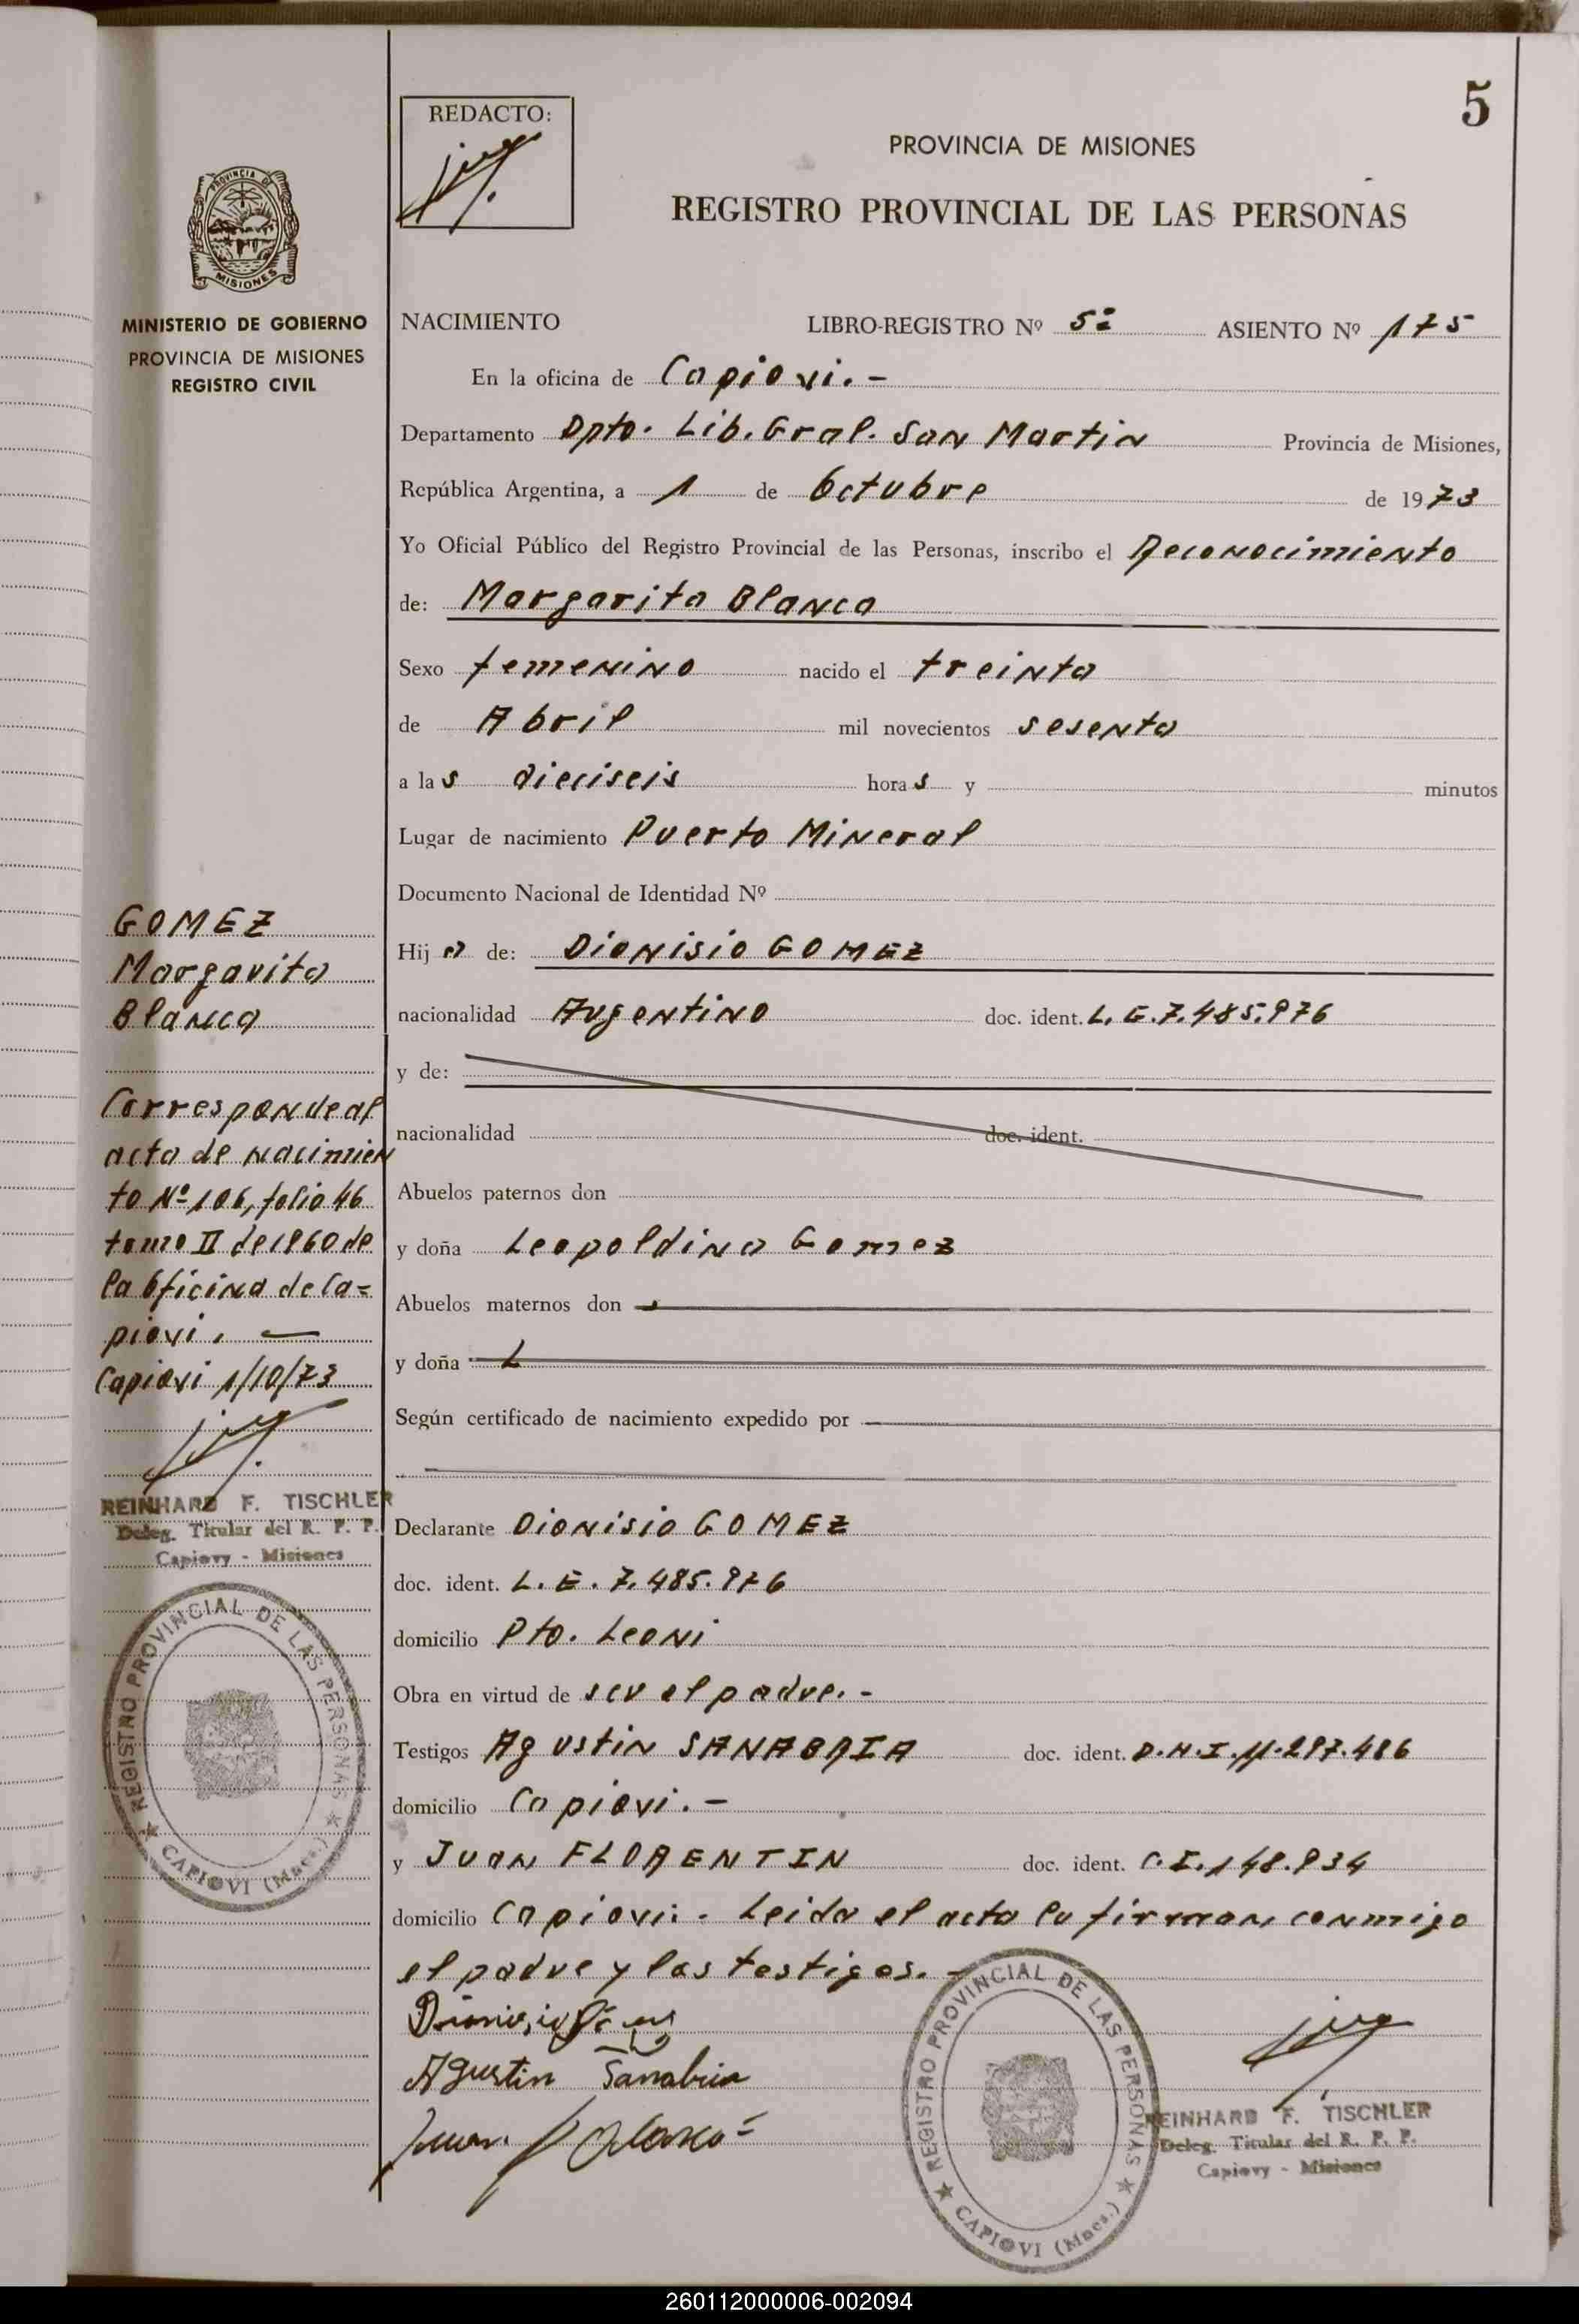 5
REDACTO:
PROVINCIA DE MISIONES
REGISTRO PROVINCIAL DE LAS PERSONAS
PROVINCIA DE
MISIONES
MINISTERIO DE GOBIERNO
PROVINCIA DE MISIONES
REGISTRO CIVIL
NACIMIENTO LIBRO-REGISTRO Nº 5º ASIENTO Nº 175
En la oficina de Capiovi.-
Departamento Dpto. Lib. Gral. San Martin Provincia de Misiones,
República Argentina, a 1 de Octubre de 1973
Yo Oficial Público del Registro Provincial de las Personas, inscribo el Reconocimiento
de: Margarita Blanca
Sexo femenino nacido el treinta
de Abril mil novecientos sesenta
a las dieciseis horas y minutos
Lugar de nacimiento Puerto Mineral
Documento Nacional de Identidad Nº
Hija de: Dionisio GOMEZ
nacionalidad Argentino doc. ident. L.E. 7.485.976
y de:
nacionalidad doc. ident.
Abuelos paternos don
y doña Leopoldina Gomez
Abuelos maternos don
y doña
Según certificado de nacimiento expedido por
Declarante Dionisio GOMEZ
doc. ident. L.E. 7.485.976
domicilio Pto. Leoni
Obra en virtud de ser el padre.-
Testigos Agustin SANABRIA doc. ident. D.N.I. 11.297.486
domicilio Capiovi.-
y Juan FLORENTIN doc. ident. C.I. 148.934
domicilio Capiovi.- Leida el acta la firman conmigo
el padre y los testigos.-
Agustin Sanabria
GOMEZ
Margarita
Blanca
Corresponde al
acta de nacimien
to Nº 106, folio 46
tomo II de 1960 de
la Oficina de Ca=
piovi.
Capiovi 1/10/73
REINHARD F. TISCHLER
Deleg. Titular del R. P. P.
Capiovy - Misiones
REGISTRO PROVINCIAL DE LAS PERSONAS
CAPIOVI (Mnes.)
REGISTRO PROVINCIAL DE LAS PERSONAS
CAPIOVI (Mnes.)
REINHARD F. TISCHLER
Deleg. Titular del R. P. P.
Capiovy - Misiones
260112000006-002094